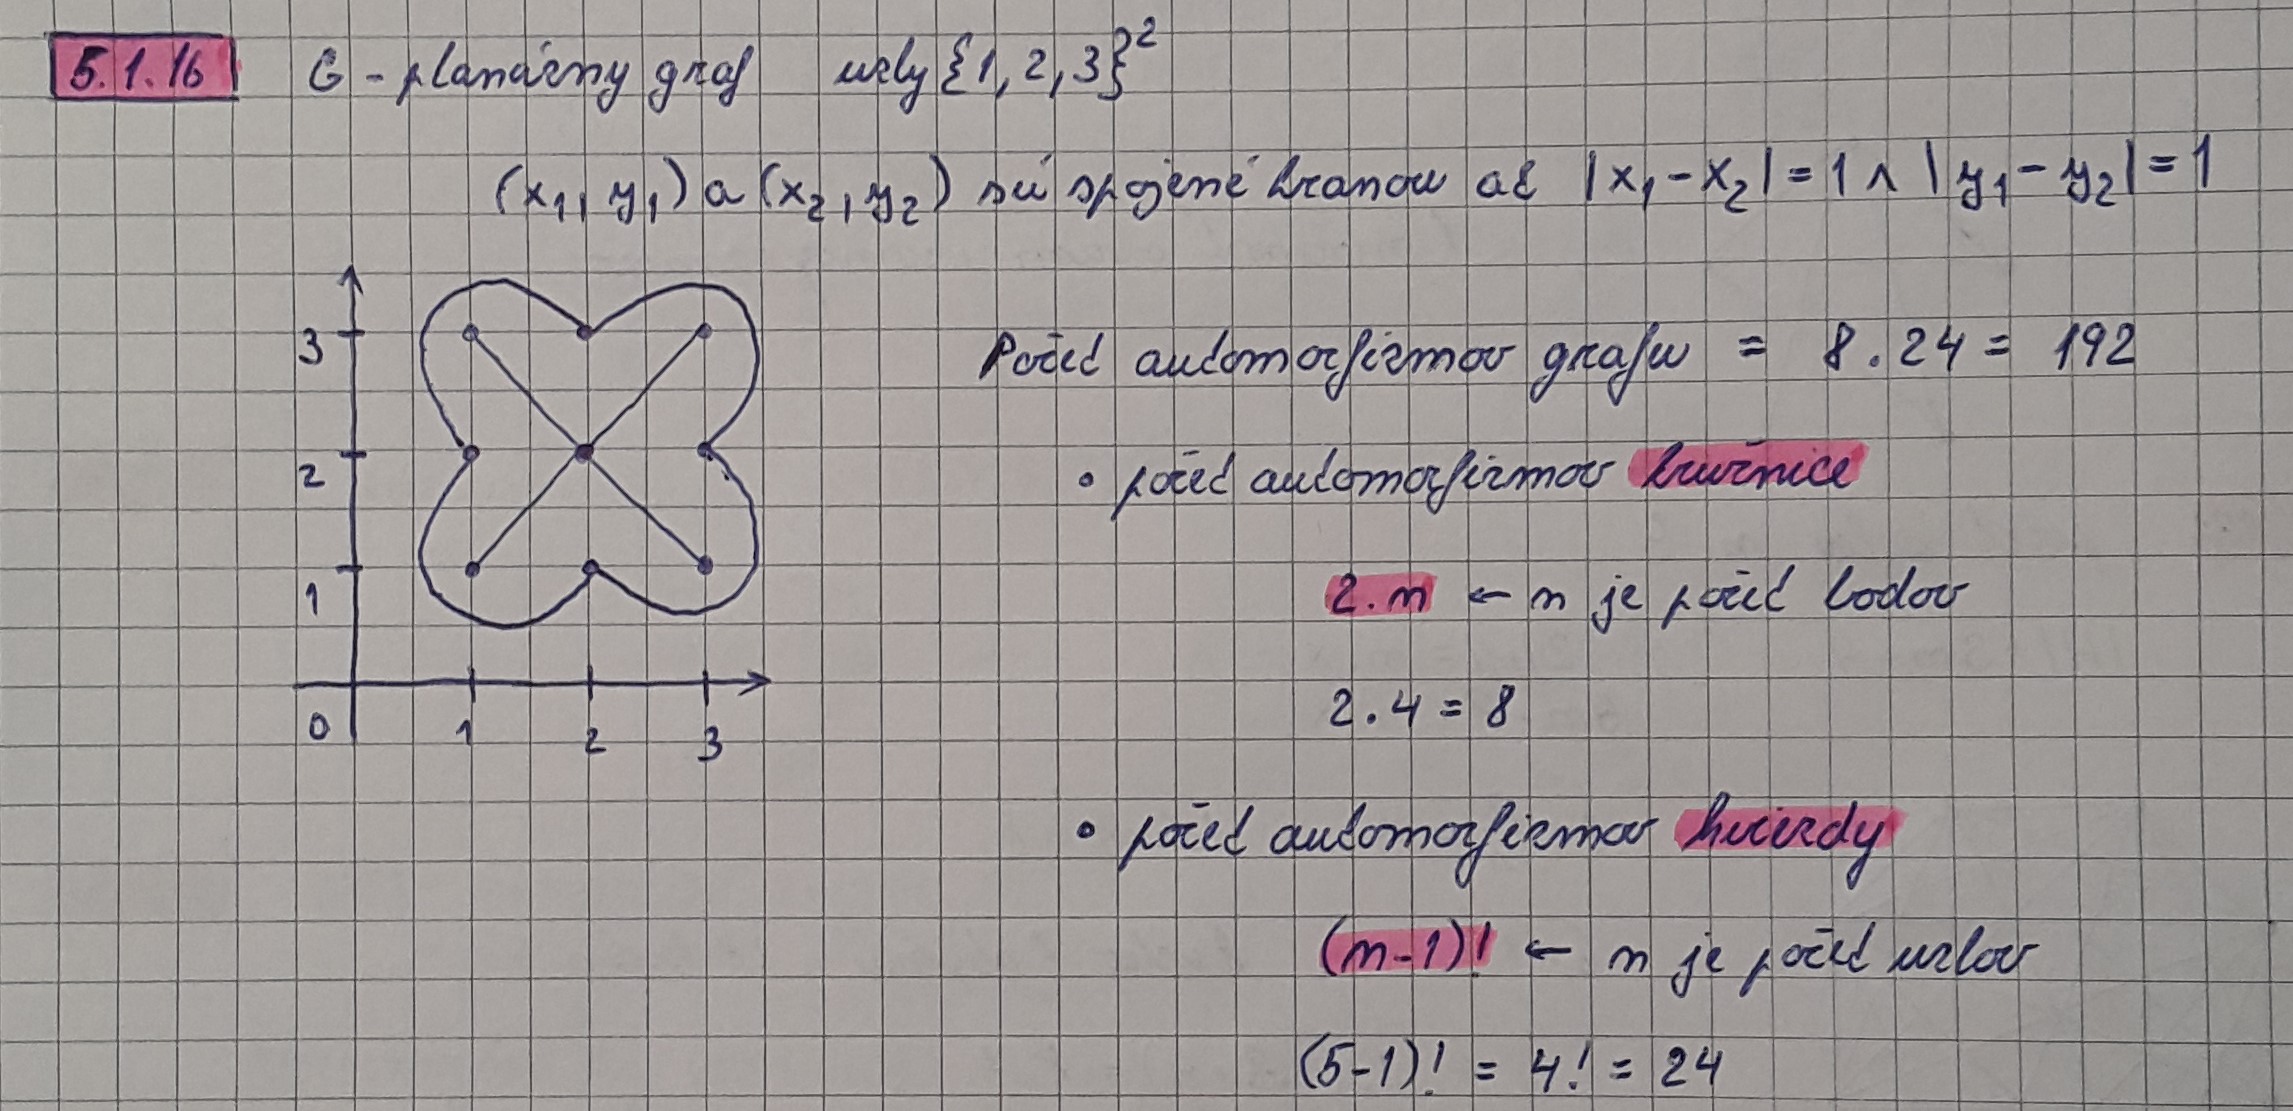 5.1.16 G - planárny graf uzly {1, 2, 3}²
(x₁, y₁) a (x₂, y₂) sú spojené hranou ak |x₁ - x₂| = 1 ∧ |y₁ - y₂| = 1
3
2
1
0 1 2 3
Počet automorfizmov grafu = 8 . 24 = 192
• počet automorfizmov kružnice
2.n ← n je počet bodov
2.4 = 8
• počet automorfizmov hviezdy
(n-1)! ← n je počet uzlov
(5-1)! = 4! = 24